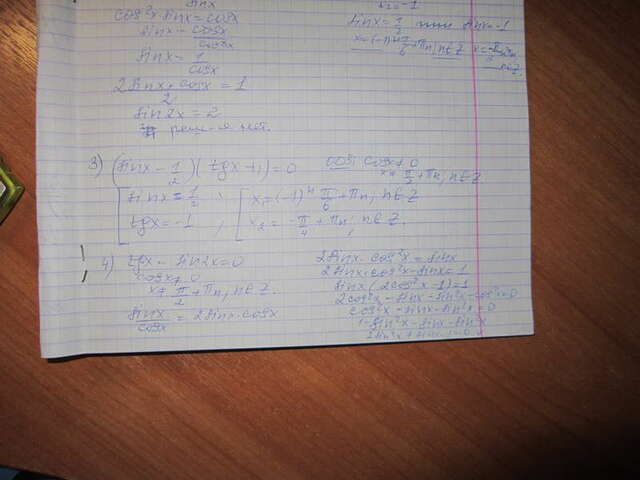 sinx
cos²x · sinx = cosx
sinx = cosx / cos²x
sinx = 1 / cosx
2 sinx · cosx / 2 = 1
sin2x = 2
реше-я нет.
= -1
sinx = 1/2 или sinx = -1
x = (-1)ⁿ π/6 + πn, n∈Z
n∈Z.
3) (sinx - 1/2)(tgx + 1) = 0
ООУ: cosx ≠ 0
x ≠ π/2 + πn, n∈Z
[ sinx = 1/2 ; [ x₁ = (-1)ⁿ π/6 + πn, n∈Z
tgx = -1 ; x₂ = -π/4 + πn, n∈Z.
4) tgx - sin2x = 0
cosx ≠ 0
x ≠ π/2 + πn, n∈Z.
sinx / cosx = 2 sinx · cosx
2 sinx · cos²x = sinx
2 sinx · cos²x - sinx = 1
sinx (2cos²x - 1) = 1
2cos²x - sinx - sin²x - cos²x = 0
cos²x - sinx - sin²x = 0
1 - sin²x - sinx - sin²x